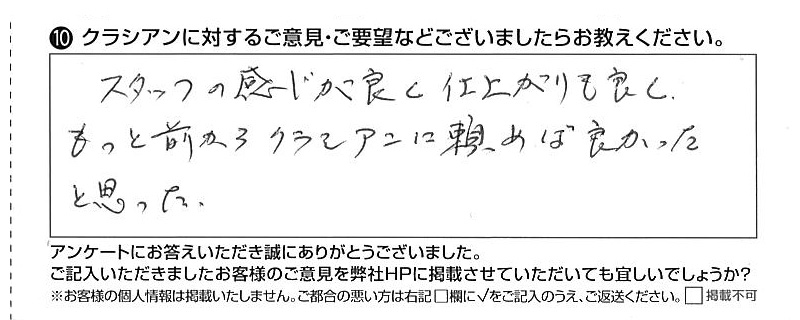 ⑩ クラシアンに対するご意見・ご要望などございましたらお教えください。
スタッフの感じが良く仕上がりも良く、
もっと前からクラシアンに頼めば良かった
と思った。
アンケートにお答えいただき誠にありがとうございました。
ご記入いただきましたお客様のご意見を弊社HPに掲載させていただいても宜しいでしょうか?
※お客様の個人情報は掲載いたしません。ご都合の悪い方は右記□欄に√をご記入のうえ、ご返送ください。□掲載不可